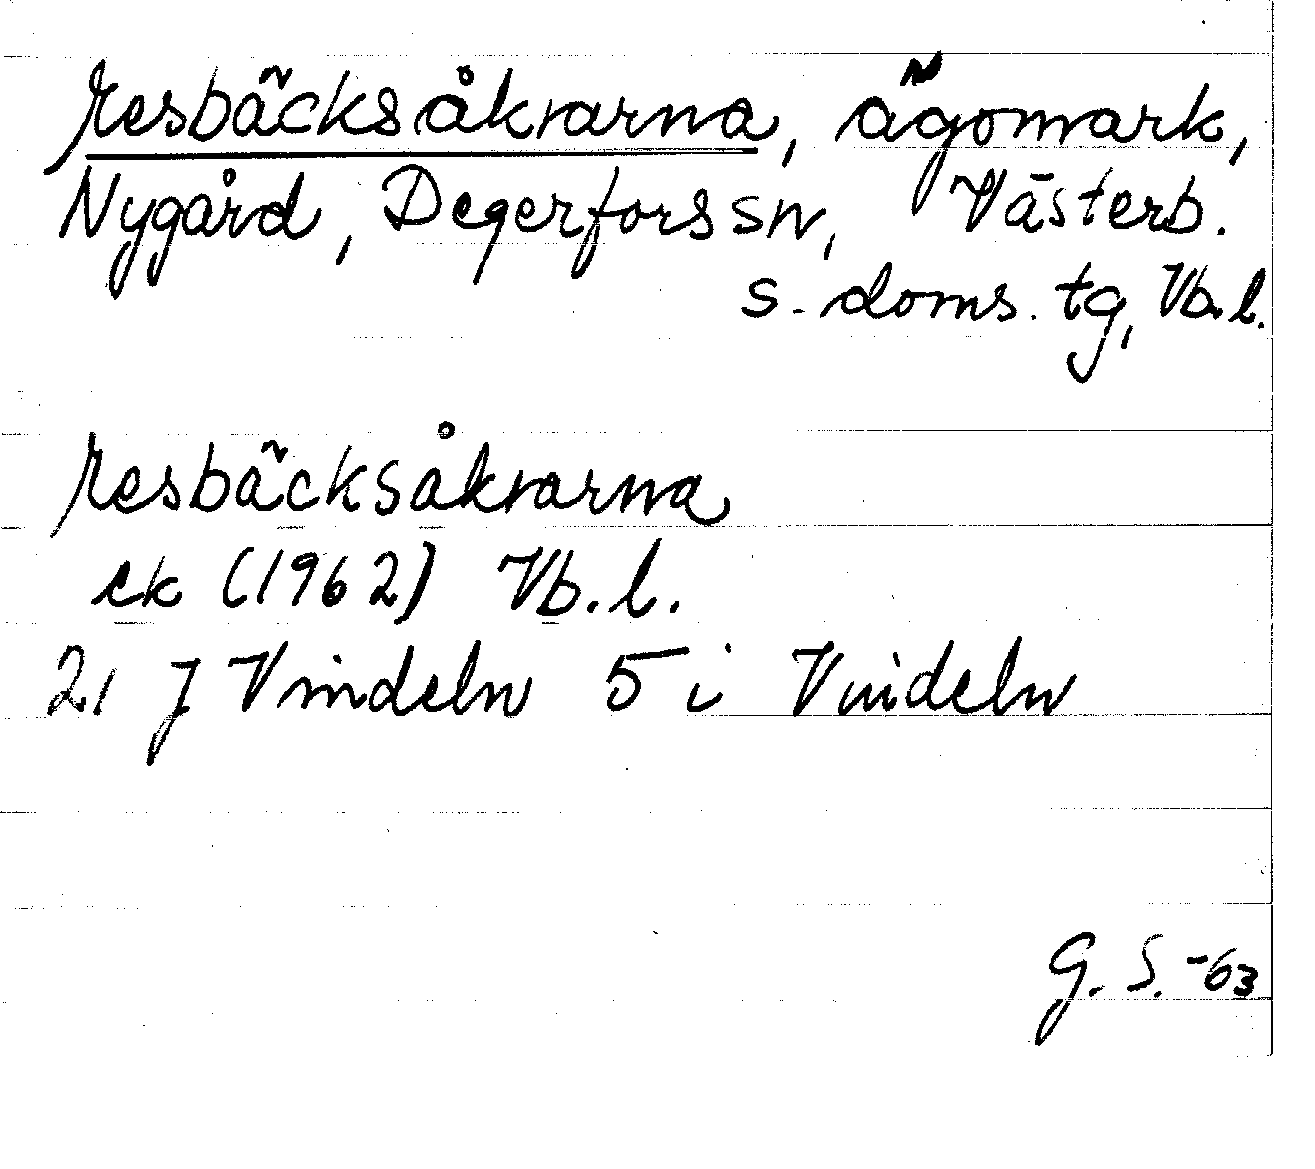 Resbäcksåkrarna, ägomark,
Nygård, Degerfors sn, Västerb.
s. doms. tg, Vb. l.
Resbäcksåkrarna
ek (1962) Vb. l.
21 J Vindeln 5 i Vindeln
G. S. -63